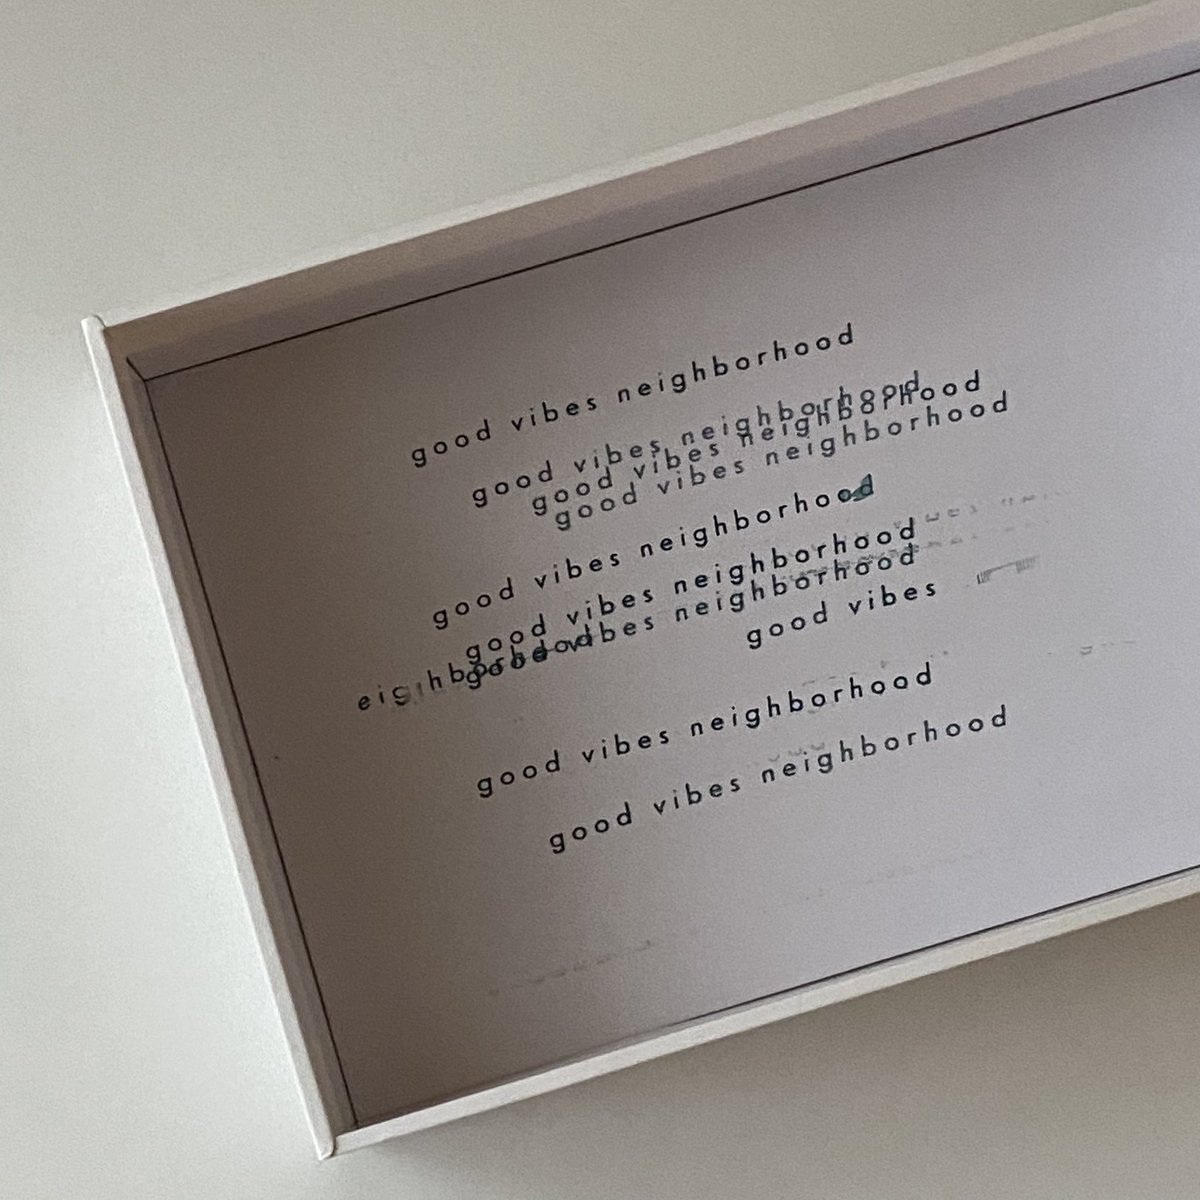 good vibes neighborhood
good vibes neighborhood
good vibes neighborhood
good vibes neighborhood
good vibes neighborhood
good vibes neighborhood
good vibes neighborhood
good vibes
eighborhood
good vibes neighborhood
good vibes neighborhood